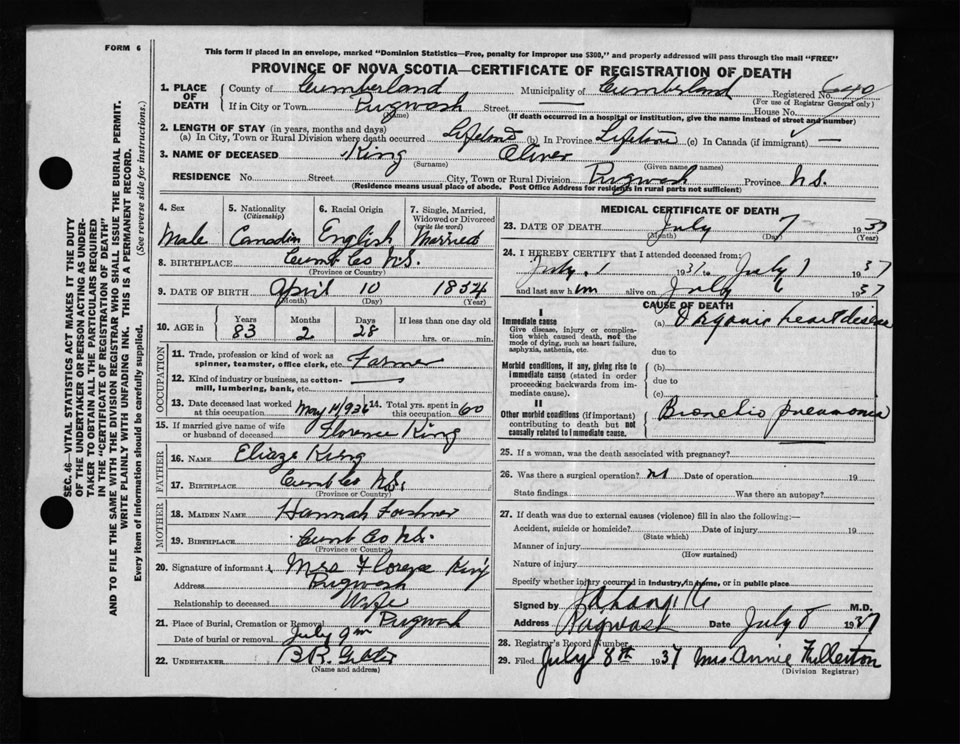 FORM 6
This form if placed in an envelope, marked "Dominion Statistics—Free, penalty for improper use $300," and properly addressed will pass through the mail "FREE"
PROVINCE OF NOVA SCOTIA—CERTIFICATE OF REGISTRATION OF DEATH
SEC. 46—VITAL STATISTICS ACT MAKES IT THE DUTY
OF THE UNDERTAKER OR PERSON ACTING AS UNDER-
TAKER TO OBTAIN ALL THE PARTICULARS REQUIRED
IN THE "CERTIFICATE OF REGISTRATION OF DEATH"
AND TO FILE THE SAME WITH THE DIVISION REGISTRAR WHO SHALL ISSUE THE BURIAL PERMIT.
WRITE PLAINLY WITH UNFADING INK. THIS IS A PERMANENT RECORD.
Every item of information should be carefully supplied. (See reverse side for instructions.)
1. PLACE OF DEATH County of Cumberland Municipality of Cumberland Registered No. 640
(For use of Registrar General only)
If in City or Town Pugwash Street House No.
(Name) (If death occurred in a hospital or institution, give the name instead of street and number)
2. LENGTH OF STAY (in years, months and days)
(a) In City, Town or Rural Division where death occurred Lifetime (b) in Province Lifetime (c) In Canada (if immigrant) —
3. NAME OF DECEASED King Oliver
(Surname) (Given name or names)
RESIDENCE No. Street City, Town or Rural Division Pugwash Province N.S.
(Residence means usual place of abode. Post Office Address for residents in rural parts not sufficient)
4. Sex Male
5. Nationality (Citizenship) Canadian
6. Racial Origin English
7. Single, Married, Widowed or Divorced (write the word) Married
8. BIRTHPLACE Cumb Co N.S.
(Province or Country)
9. DATE OF BIRTH April 10 1854
(Month) (Day) (Year)
10. AGE in Years 83 Months 2 Days 28 If less than one day old hrs. or min.
OCCUPATION
11. Trade, profession or kind of work as spinner, teamster, office clerk, etc. Farmer
12. Kind of industry or business, as cotton-mill, lumbering, bank, etc. —
13. Date deceased last worked at this occupation May 1936 14. Total yrs. spent in this occupation 60
15. If married give name of wife or husband of deceased Florence King
FATHER
16. NAME King
17. BIRTHPLACE Cumb Co N.S.
(Province or Country)
MOTHER
18. MAIDEN NAME Hannah
19. BIRTHPLACE Cumb Co N.S.
(Province or Country)
20. Signature of informant Mrs Florence King
Address Pugwash
Relationship to deceased Wife
21. Place of Burial, Cremation or Removal Pugwash
Date of burial or removal July 9th
22. UNDERTAKER B.R.
(Name and address)
MEDICAL CERTIFICATE OF DEATH
23. DATE OF DEATH July 7 1937
(Month) (Day) (Year)
24. I HEREBY CERTIFY that I attended deceased from:
July 1 1937 to July 7 1937
and last saw him alive on July 6 1937
CAUSE OF DEATH
I
Immediate cause
Give disease, injury or complication which caused death, not the mode of dying, such as heart failure, asphyxia, asthenia, etc.
(a) Organic heart disease
due to
Morbid conditions, if any, giving rise to immediate cause (stated in order proceeding backwards from immediate cause).
(b)
due to
(c)
II
Other morbid conditions (if important) contributing to death but not causally related to immediate cause.
Bronchio pneumonia
25. If a woman, was the death associated with pregnancy?
26. Was there a surgical operation? no Date of operation 19
State findings Was there an autopsy?
27. If death was due to external causes (violence) fill in also the following:—
Accident, suicide or homicide? Date of injury 19
(State which)
Manner of injury
(How sustained)
Nature of injury
Specify whether injury occurred in industry, in home, or in public place
Signed by M.D.
Address Pugwash Date July 8 1937
28. Registrar's Record Number
29. Filed July 8th 1937 Mrs Annie Fullerton
(Division Registrar)